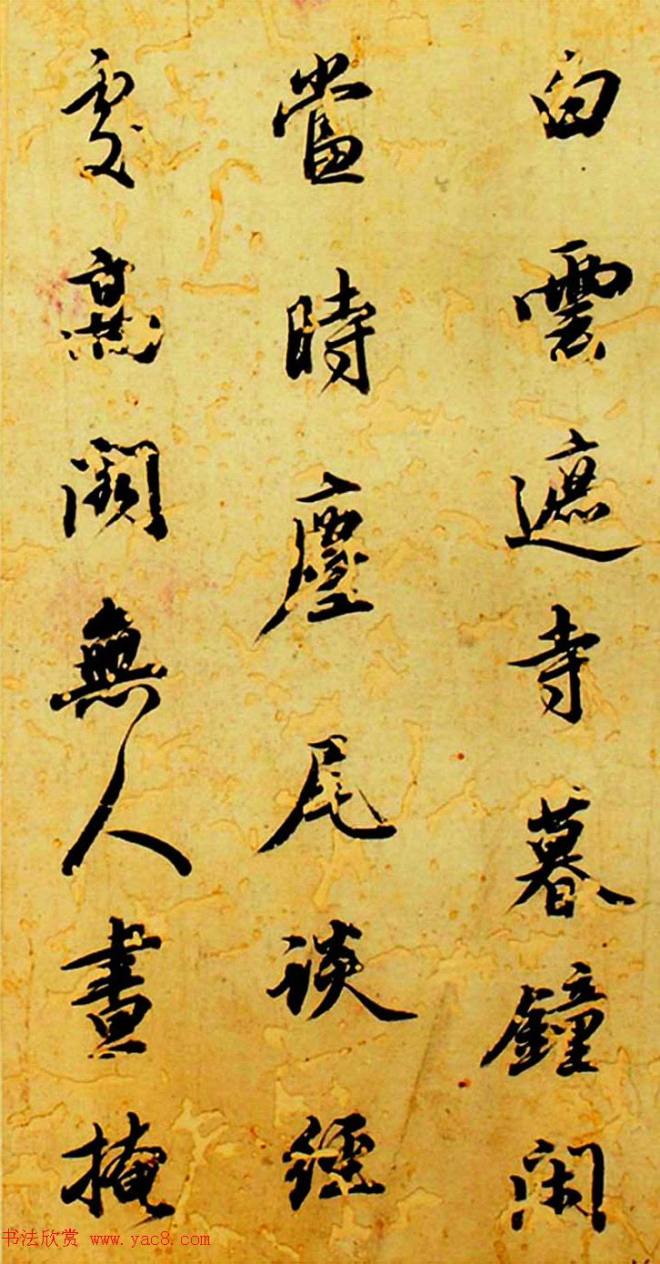 白雲遮寺暮鐘閑
當時麈尾談經
處閣無人晝掩
书法欣赏 www.yac8.com